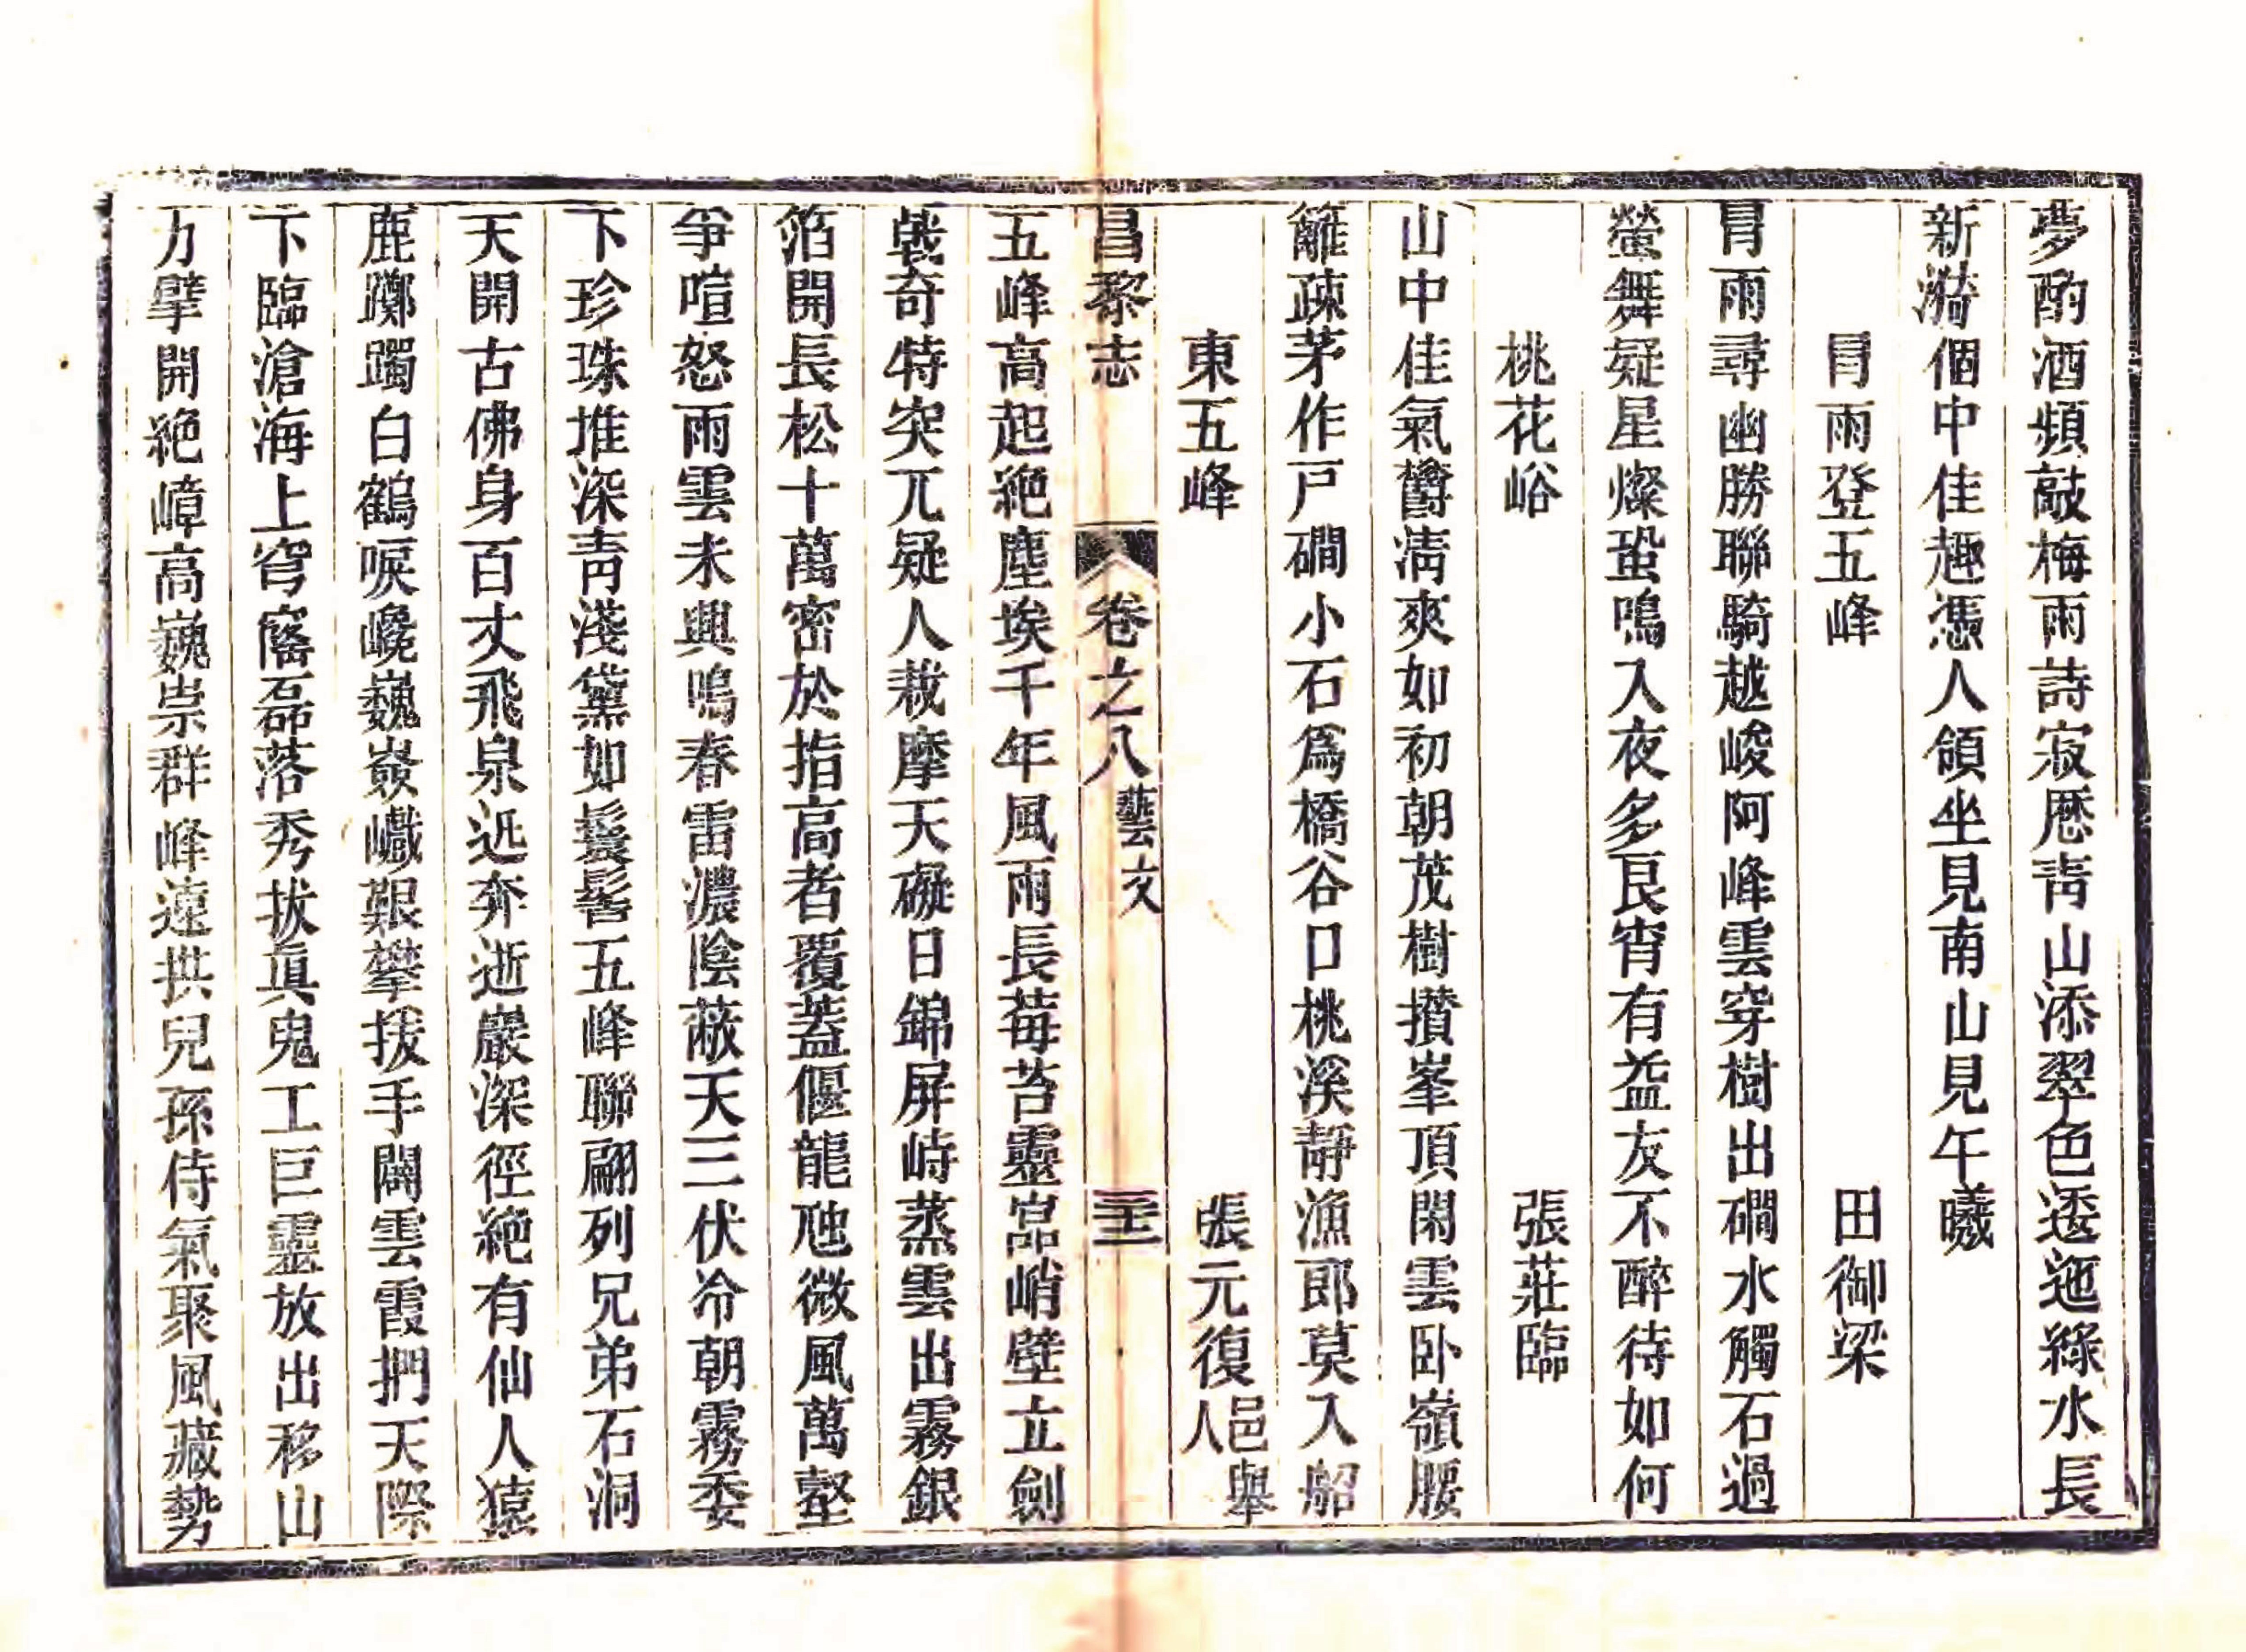 夢酌酒頻敲梅雨詩寂歷青山添翠色逶迤綠水長
新漪個中佳趣憑人領坐見南山見午曦
冐雨登五峰 田御梁
冐雨尋幽勝聯騎越峻阿峰雲穿樹出磵水觸石過
螢舞疑星燦蛩鳴入夜多良宵有益友不醉待如何
桃花峪 張莊臨
山中佳氣欝清爽如初朝茂樹攅峯頂閑雲卧嶺腰
籬疎茅作戸磵小石爲橋谷口桃溪靜漁郎莫入船
東五峰 張元復邑人舉
昌黎志 卷之八藝文 三十二
五峰高起絶塵埃千年風雨長莓苔靈嵓峭壁立劍
戟奇特突兀疑人裁摩天礙日錦屏峙蒸雲出霧銀
箔開長松十萬密於指高者覆蓋偃龍虺微風萬壑
爭喧怒雨雲未興鳴春雷濃陰蔽天三伏冷朝霧委
下珍珠堆深青淺黛如鬟髻五峰聯翩列兄弟石洞
天開古佛身百丈飛泉迅奔逝巖深徑絶有仙人猿
鹿躑躅白鶴唳巉巍嶔巇艱攀援手闢雲霞捫天際
下臨滄海上穹窿磊落秀拔眞鬼工巨靈放出移山
力擘開絶嶂高巍祟群峰遠拱兒孫侍氣聚風藏勢